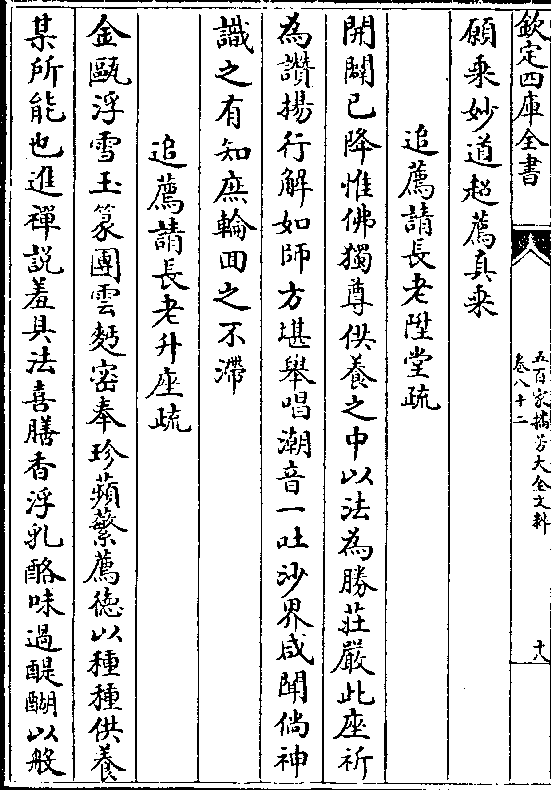 欽定四庫全書
五百家播芳大全文粹
卷八十二
十八
願乘妙道超薦真乘
追薦請長老陞堂疏
開闢已降惟佛獨尊供養之中以法為勝莊嚴此座祈
為讚揚行解如師方堪舉唱潮音一吐沙界咸聞倘神
識之有知庶輪回之不滯
追薦請長老升座疏
金甌浮雪玉篆團雲麫密奉珍蘋蘩薦德以種種供養
某所能也進禪説羞具法喜膳香浮乳酪味過醍醐以般